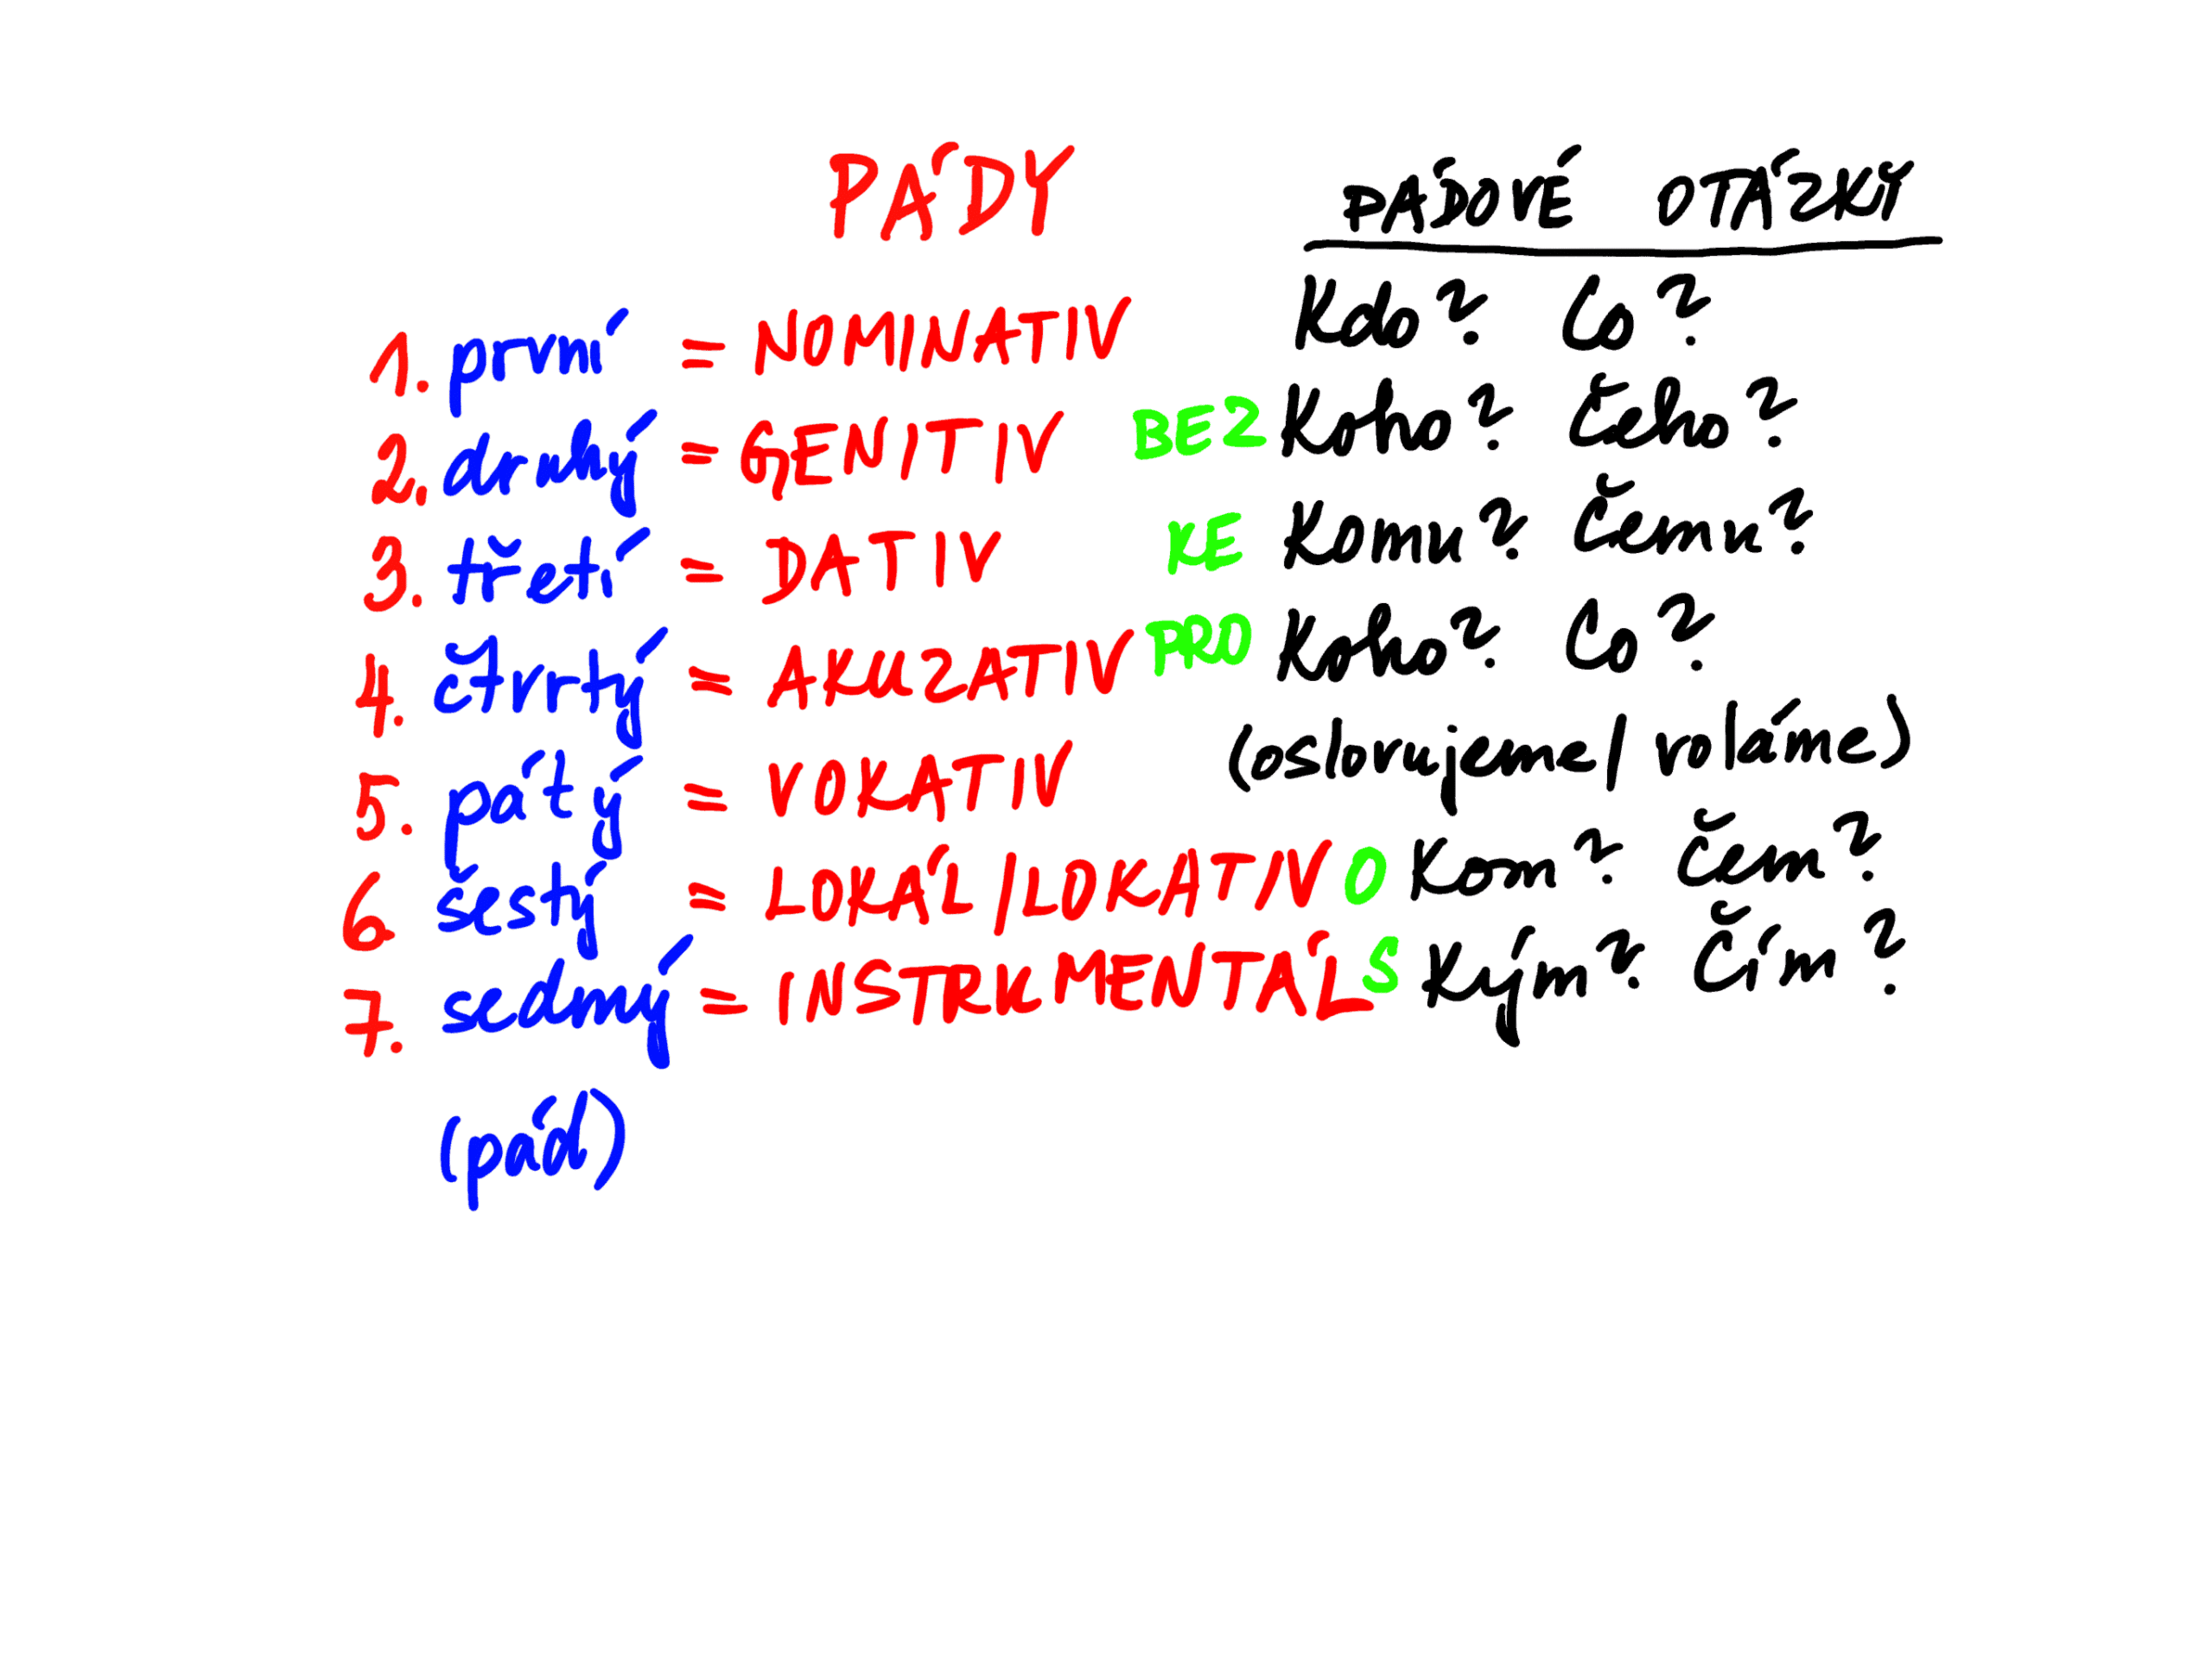 PÁDY PÁDOVÉ OTÁZKY
1. první = NOMINATIV Kdo? Co?
2. druhý = GENITIV BEZ Koho? Čeho?
3. třetí = DATIV KE Komu? Čemu?
4. čtvrtý = AKUZATIV PRO Koho? Co?
5. pátý = VOKATIV (oslovujeme/voláme)
6 šestý = LOKÁL/LOKATIV O Kom? Čem?
7. sedmý = INSTRUMENTÁL S Kým? Čím?
(pád)